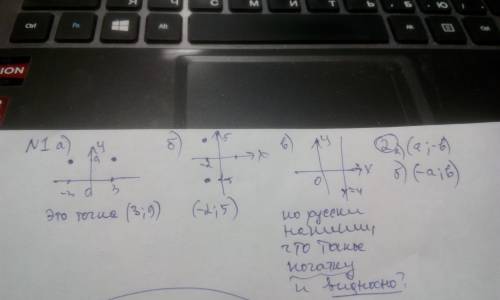 N1 а) б) в) 2 а) (a;-b)
б) (-a;b)
y 9 -3 0 3
5 -2 x -5
y 0 x x=4
это точка (3;9) (-2;5)
по русски
напиши,
что такое
початку
и видносно?
Ctrl Fn Alt Ctrl